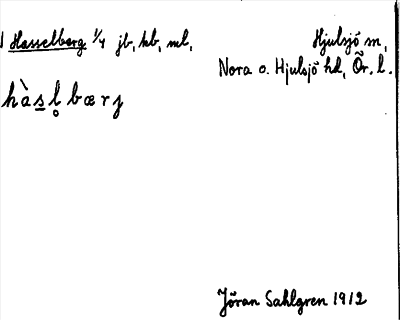 Hasselberg 1/4 jb, kb, ml,
Hjulsjö sn,
Nora o. Hjulsjö hd, Ör. l.
hàsl̥bærj
Jöran Sahlgren 1912